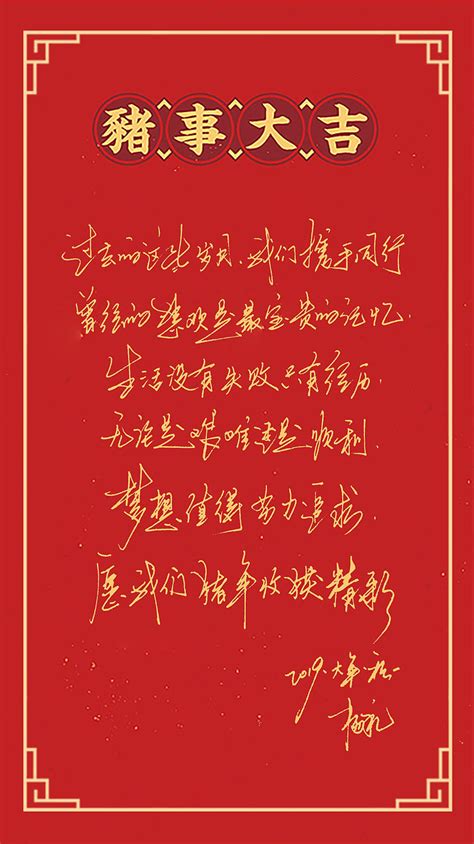 豬事大吉
过去的这些岁月,我们携手同行
曾经的悲欢是最宝贵的记忆.
生活没有失败只有经历.
无论是艰难还是顺利.
梦想值得努力追求.
愿我们猪年收获精彩
2019.大年初一